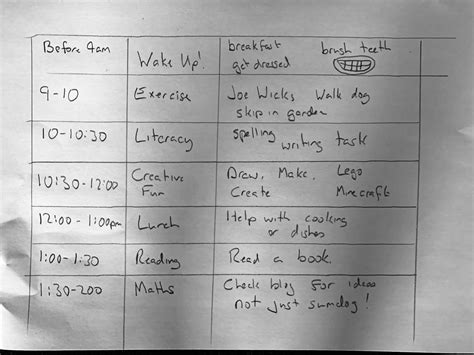 Before 9am Wake Up! breakfast brush teeth
get dressed
9-10 Exercise Joe Wicks Walk dog
skip in garden
10-10:30 Literacy spelling writing task
10:30-12:00 Creative Fun Draw, Make, Lego
Create Minecraft
12:00-1:00pm Lunch Help with cooking
or dishes
1:00-1:30 Reading Read a book.
1:30-200 Maths Check blog for ideas
not just sumdog!